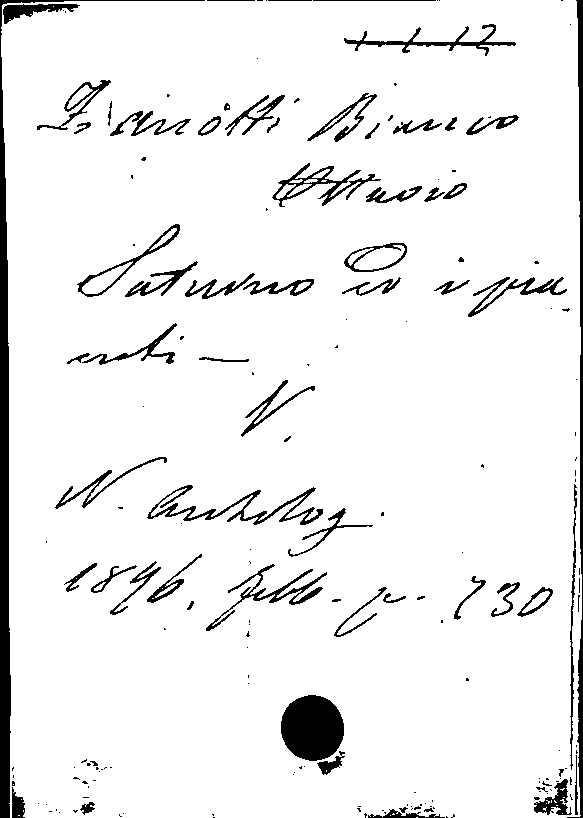 1.1.12
Zanotti Bianco
Ottavio
Saturno ed i pia
neti —
V.
N. Antolog.
1896. febb. p. 730